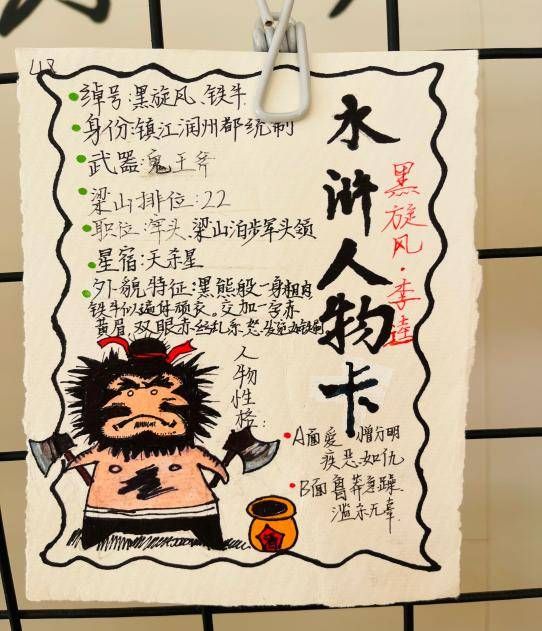 48
绰号:黑旋风、铁牛
身份:镇江润州都统制
武器:鬼王斧
梁山排位:22
职位:军头、梁山泊步军头领
星宿:天杀星
外貌特征:黑熊般一身粗肉
铁牛似遍体顽衣。交加一字赤
黄眉,双眼赤丝乱系。怒发
水浒人物卡
黑旋风·李逵
人物性格:
A面爱憎分明
疾恶如仇
B面鲁莽急躁
滥杀无辜
酒